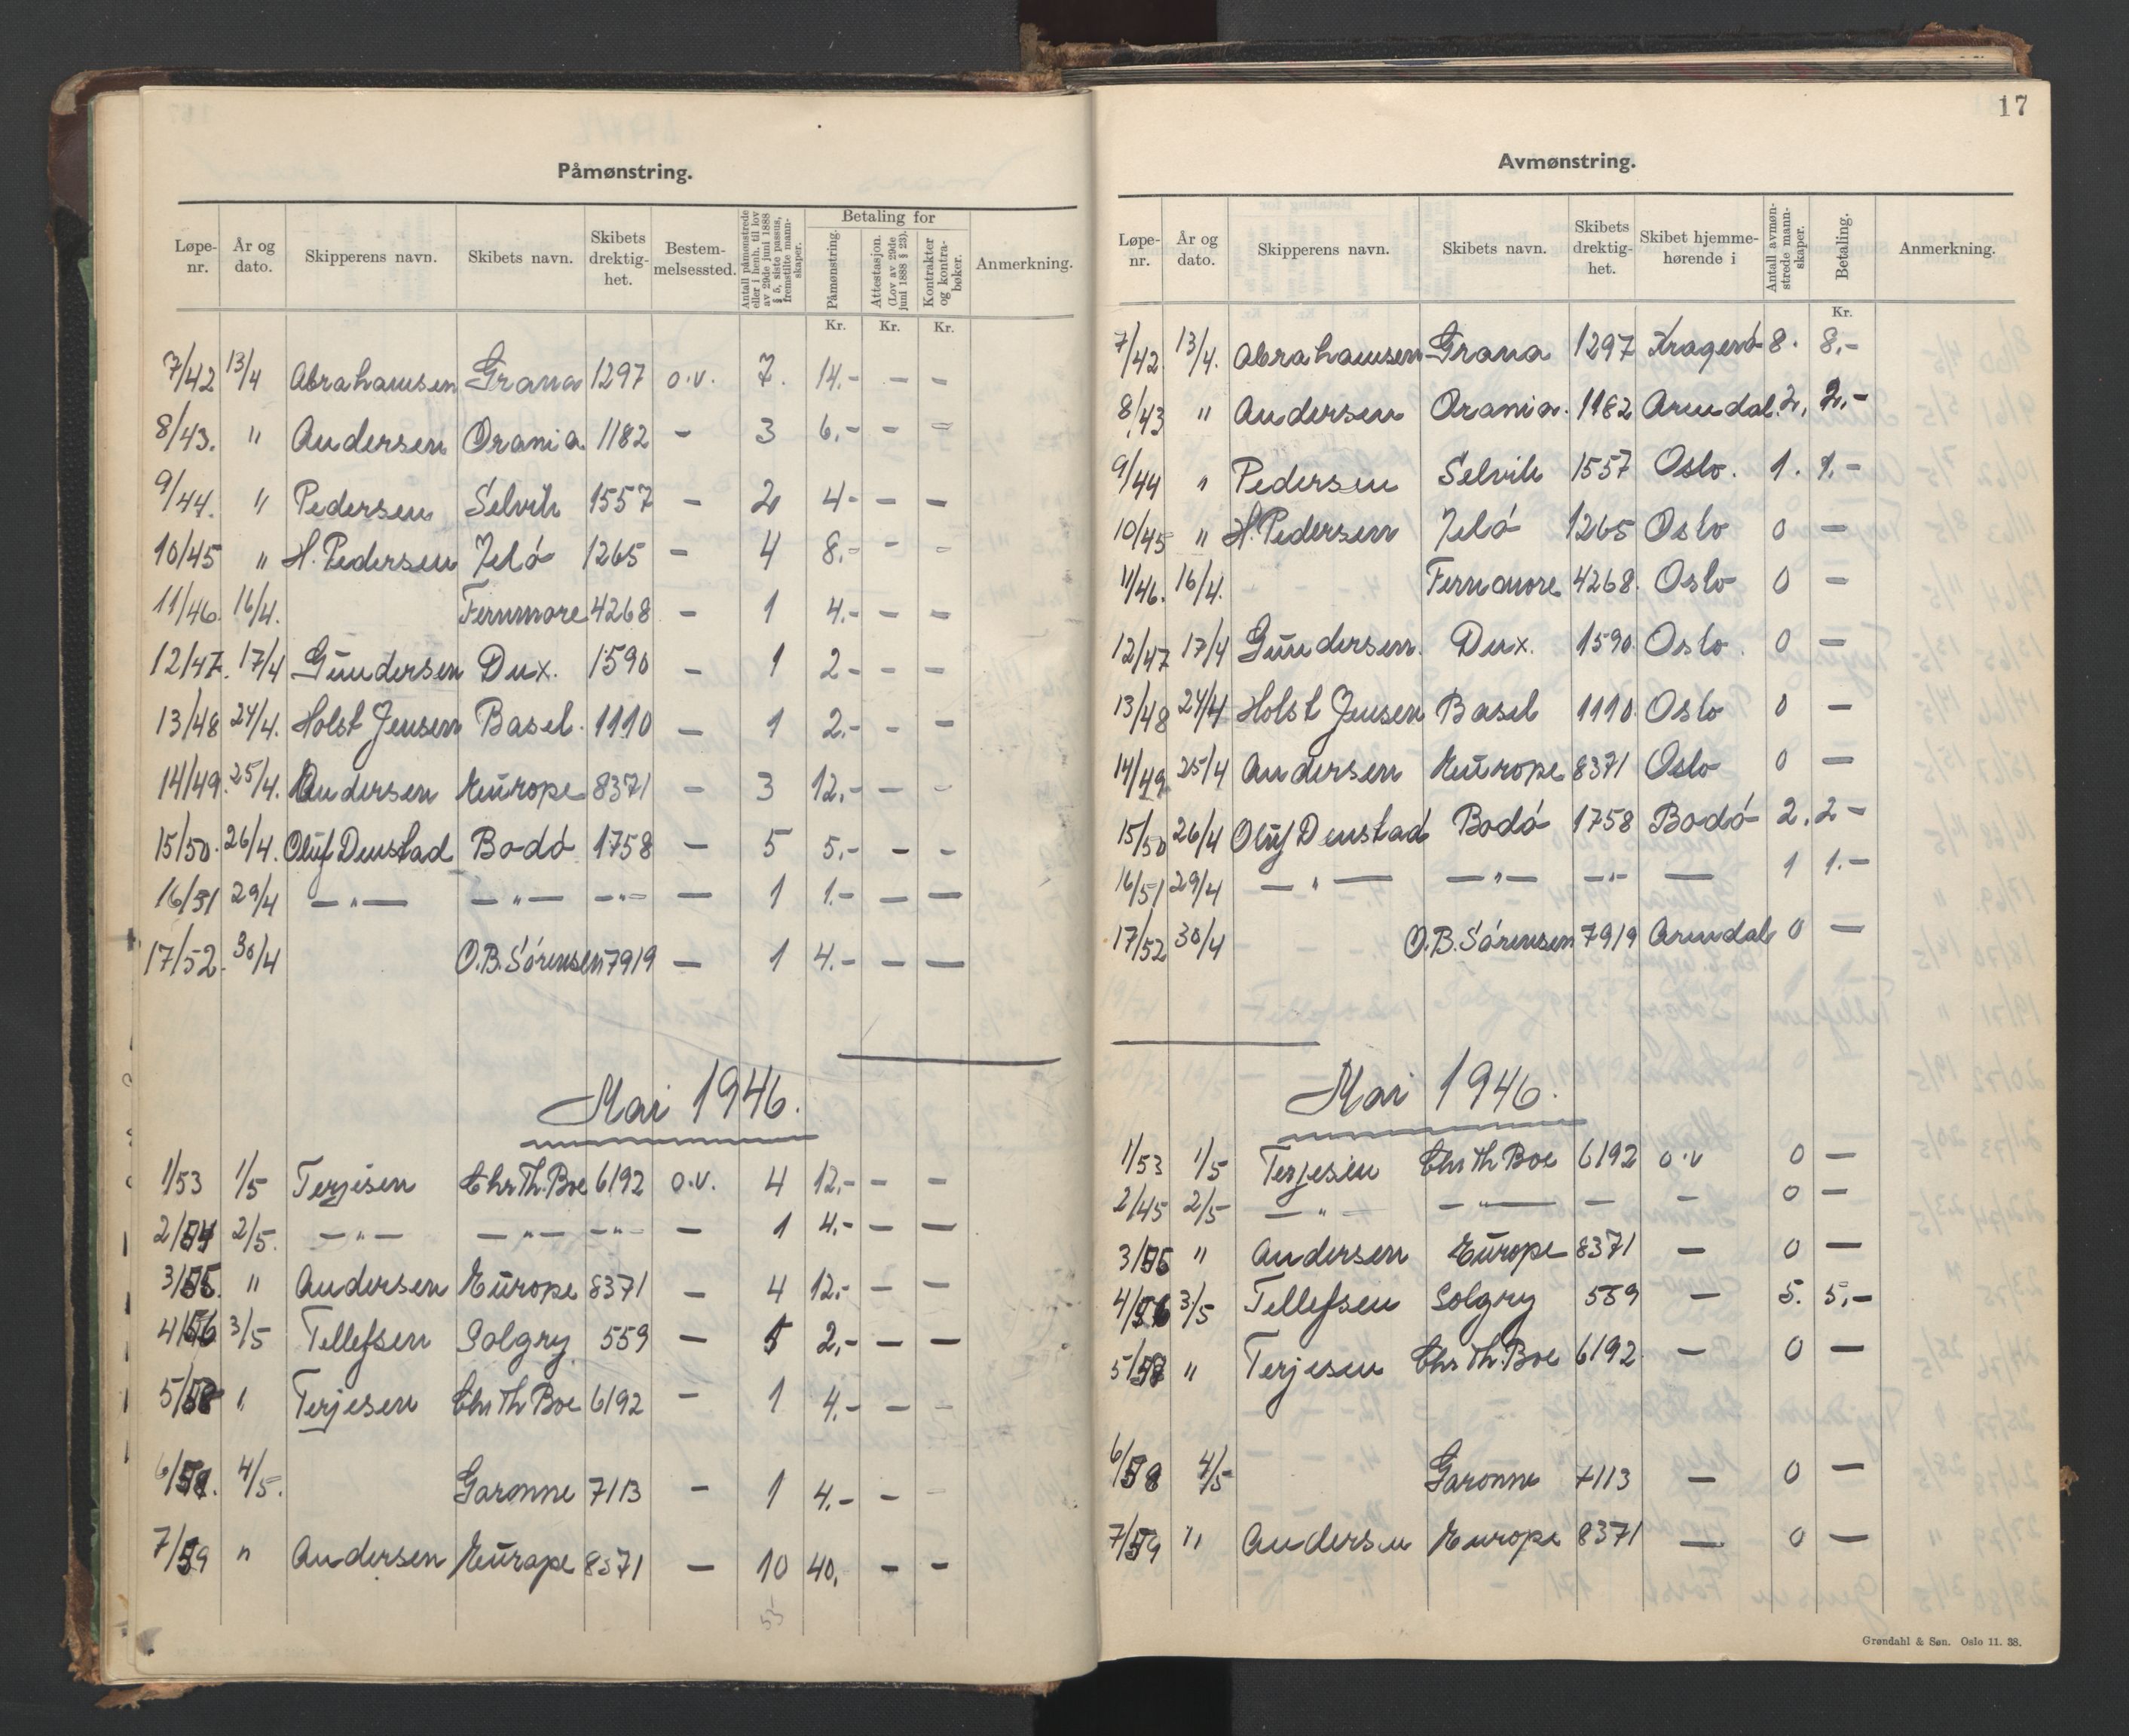 Påmønstring.
Løpe-nr. År og dato. Skipperens navn. Skibets navn. Skibets drektig-het. Bestem-melsessted. Antall påmønstrede eller i henh. til lov av 29de juni 1888 § 5, siste passus, fremstilte mann-skaper. Betaling for Påmønstring. Attestasjon. (Lov av 29de juni 1888 § 23). Kontrakter og kontra-bøker. Anmerkning.
Kr. Kr. Kr.
7/42 13/4 Abrahamsen Grana 1297 o.v. 7. 14.- - -
8/43. " Andersen Orania 1182 - 3 6.- - =
9/44. " Pedersen Selvik 1557 - 2 4- - -
10/45 " H. Pedersen Jelö 1265 - 4 8.- - -
11/46. 16/4. Fernmore 4268 - 1 4.- - -
12/47. 17/4 Gundersen Dux. 1590 - 1 2- - -
13/48 24/4. Holst Jensen Basel. 1110 - 1 2.- - -
14/49. 25/4. Andersen Europe 8371 - 3 12.- - -
15/50. 26/4. Oluf Denstad Bodö 1758 - 5 5.- - -
16/51 29/4 —"— —"— -"- — 1 1.- - —
17/52. 30/4 O.B. Sörensen 7919 - 1 4.- - —
Mai 1946.
1/53 1/5 Terjesen Chr Th. Boe 6192 o.v. 4 12.- - -
2/54 2/5. —"— —"— -"- - 1 4.- - —
3/55. " Andersen Europe 8371 - 4 12.- - -
4/56 3/5 Tellefsen Solgry 559 - 5 2.- - -
5/58 " Terjesen Chr Th Boe 6192 - 1 4.- - -
4/5. Garonne 7113 - 1 4.- - -
7/59 " Andersen Europe 8371 - 10 40. - -
55
17
Avmønstring.
Løpe-nr. År og dato. Skipperens navn. Skibets navn. Skibets drektig-het. Skibet hjemme-hørende i Antall avmøn-strede mann-skaper. Betaling. Anmerkning.
Kr.
7/42 13/4. Abrahamsen Grana 1297 Kragerö 8. 8.-
8/43 " Andersen Orania. 1182 Arendal. 2. 2.-
9/44 " Pedersen Selvik 1557 Oslo. 1. 1.-
10/45 " H. Pedersen Jelö 1265 Oslo 0 —
11/46. 16/4. Fernmore 4268. Oslo 0 —
12/47 17/4 Gundersen. Dux. 1590. Oslo. 0 —
13/48 24/4 Holst Jensen Basel 1110 Oslo 0 —
14/49 25/4 Andersen Europe 8371 Oslo 0 —
15/50 26/4 Oluf Denstad Bodö 1758 Bodö 2. 2-
16/51 29/4 —"— —"— -"- — 1 1.-
17/52 30/4 O.B. Sörensen 7919 Arendal 0 —
Mai 1946.
1/53 1/5 Terjesen Chr Th Boe 6192 o.v 0 —
2/45 2/5 —"— —"— — - 0 —
3/56 " Andersen Europe 8371 — 0 —
4/56 3/5 Tellefsen Solgry 559 — 5. 5.-
5/58 " Terjesen Chr Th. Boe 6192 — 0 —
6/58 4/5 Garonne 7113 — 0 —
7/59 " Andersen Europe 8371 — 0 —
Grøndahl & Søn. Oslo 11. 38.